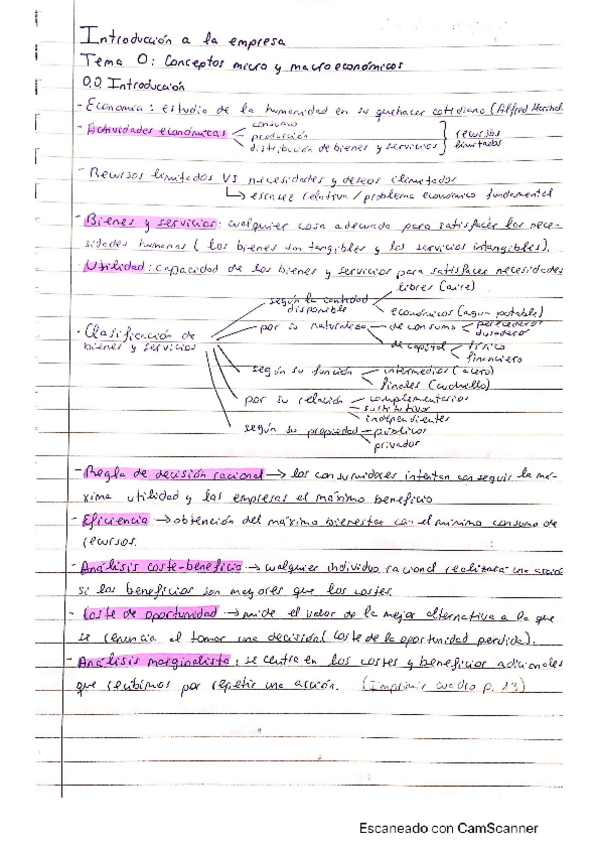 Introducción a la empresa
Tema 0: Conceptos micro y macroeconómicos
0.0 Introducción
- Economía: estudio de la humanidad en su quehacer cotidiano (Alfred Marshal
- Actividades económicas
consumo
producción
distribución de bienes y servicios
recursos
limitados
- Recursos limitados VS necesidades y deseos ilimitados
escasez relativa / problema económico fundamental
- Bienes y servicios: cualquier cosa adecuada para satisfacer las nece-
sidades humanas (los bienes son tangibles y los servicios intangibles).
- Utilidad: capacidad de los bienes y servicios para satisfacer necesidades
· Clasificación de
bienes y servicios
según la cantidad
disponible
libres (aire)
económicos (agua potable)
por su naturaleza
de consumo
perecedero
duradero
de capital
físico
financiero
según su función
intermedios (acero)
finales (cuchillo)
por su relación
complementarios
sustitutivos
independientes
según su propiedad
públicos
privados
- Regla de decisión racional → los consumidores intentan conseguir la má-
xima utilidad y las empresas el máximo beneficio
- Eficiencia → obtención del máximo bienestar con el mínimo consumo de
recursos.
- Análisis coste-beneficio → cualquier individuo racional realizará una acción
si los beneficios son mayores que los costes.
- Coste de oportunidad → mide el valor de la mejor alternativa a la que
se renuncia al tomar una decisión (coste de la oportunidad perdida).
- Análisis marginalista: se centra en los costes y beneficios adicionales
que recibimos por repetir una acción. (Imprimir cuadro p. 13)
Escaneado con CamScanner